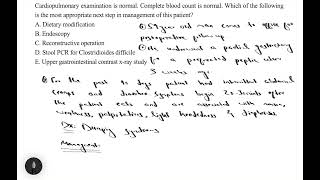 Cardiopulmonary examination is normal. Complete blood count is normal. Which of the following
is the most appropriate next step in management of this patient?
A. Dietary modification
B. Endoscopy
C. Reconstructive operation
D. Stool PCR for Clostroiddes difficile
E. Upper gastrointestinal contrast x-ray study
59 year old male comes to office for
postoperative follow-up
He underwent a partial gastrectomy
for a perforated peptic ulcer
5 weeks ago.
For the past 10 days patient had intermittent abdominal
cramps and diarrhea symptoms begin 20-30 mins after
the patient eats and are associated with nausea,
weakness, palpitations, light headedness & diaphoresis.
Dx: Dumping Syndrome
Management: